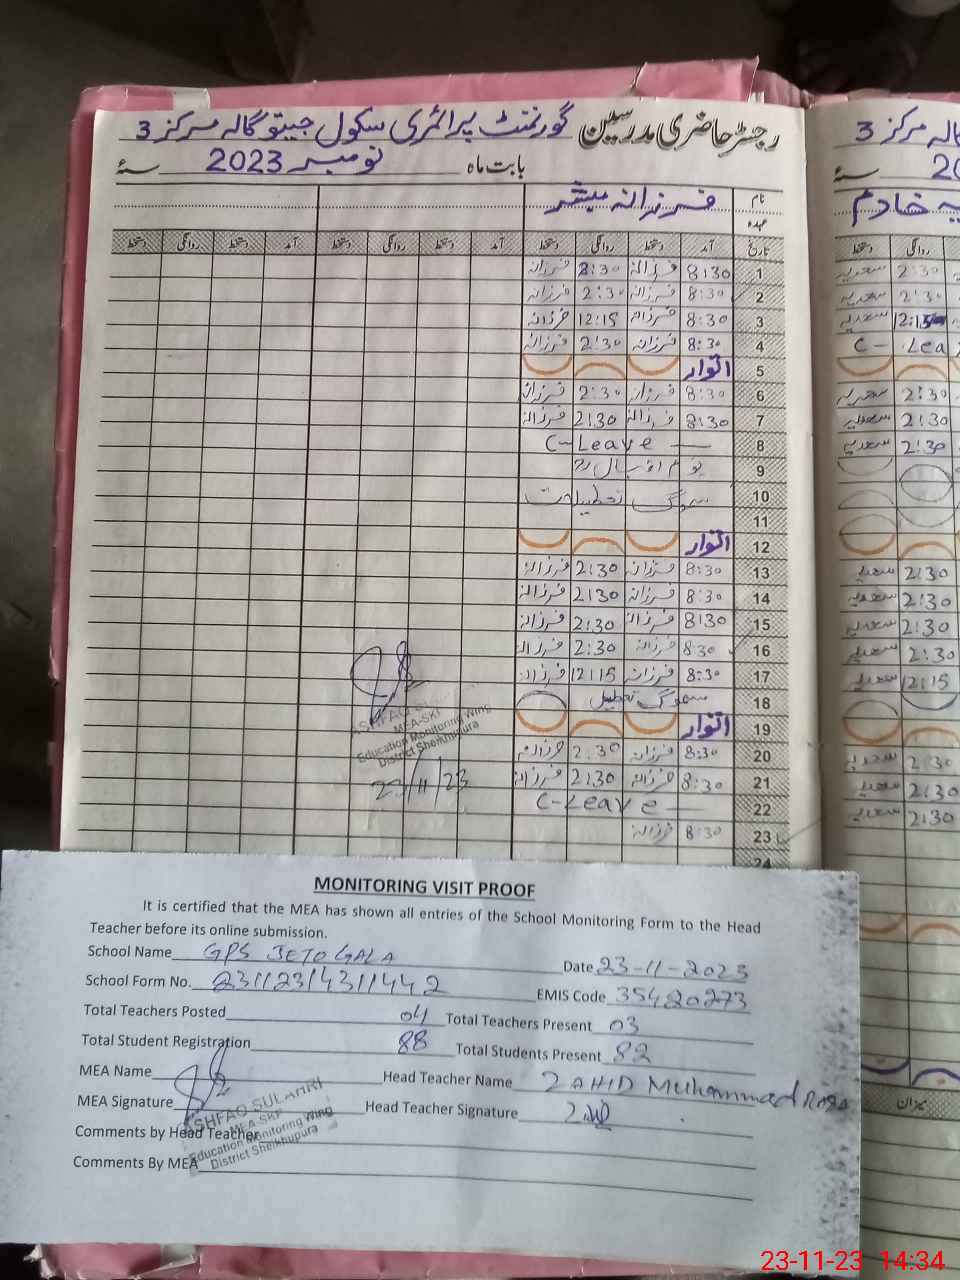 رجسٹر حاضری مدرسین گورنمنٹ پرائمری سکول جیتو گالہ مرکز 3
بابت ماہ نومبر 2023 سنۂ
نام فرزانہ مبشر
عہدہ
تاریخ آمد دستخط روانگی دستخط آمد دستخط روانگی دستخط
1 8:30 فرزانہ 2:30 فرزانہ
2 8:30 فرزانہ 2:30 فرزانہ
3 8:30 فرزانہ 12:15 فرزانہ
4 8:30 فرزانہ 2:30 فرزانہ
5 اتوار
6 8:30 فرزانہ 2:30 فرزانہ
7 8:30 فرزانہ 2:30 فرزانہ
8 C-Leave
9 یوم اقبال
10 سموگ تعطیلات
11
12 اتوار
13 8:30 فرزانہ 2:30 فرزانہ
14 8:30 فرزانہ 2:30 فرزانہ
15 8:30 فرزانہ 2:30 فرزانہ
16 8:30 فرزانہ 2:30 فرزانہ
17 8:30 فرزانہ 12:15 فرزانہ
18 سموگ تعطیل
19 اتوار
20 8:30 فرزانہ 2:30 فرزانہ
21 8:30 فرزانہ 2:30 فرزانہ
22 C-Leave
23 8:30 فرزانہ
24
ASHFAQ
MEA-SKP
Education Monitoring Wing
District Sheikhupura
23/11/23
گالہ مرکز 3
20
سنۂ
یہ خادم
روانگی دستخط
2:30 سعدیہ
2:30 سعدیہ
12:15 سعدیہ
C- Lea
2:30 سعدیہ
2:30 سعدیہ
2:30 سعدیہ
2:30 سعدیہ
2:30 سعدیہ
2:30 سعدیہ
2:30 سعدیہ
12:15 سعدیہ
2:30 سعدیہ
2:30 سعدیہ
2:30 سعدیہ
میزان
MONITORING VISIT PROOF
It is certified that the MEA has shown all entries of the School Monitoring Form to the Head
Teacher before its online submission.
School Name GPS JETO GALA Date 23-11-2023
School Form No. 23112314311442 EMIS Code 35420273
Total Teachers Posted 04 Total Teachers Present 03
Total Student Registration 88 Total Students Present 82
MEA Name Head Teacher Name ZAHID Muhammad Raza
MEA Signature Head Teacher Signature
ASHFAQ SULAHRI
MEA-SKP
Education Monitoring Wing
District Sheikhupura
Comments by Head Teacher
Comments By MEA
23-11-23 14:34